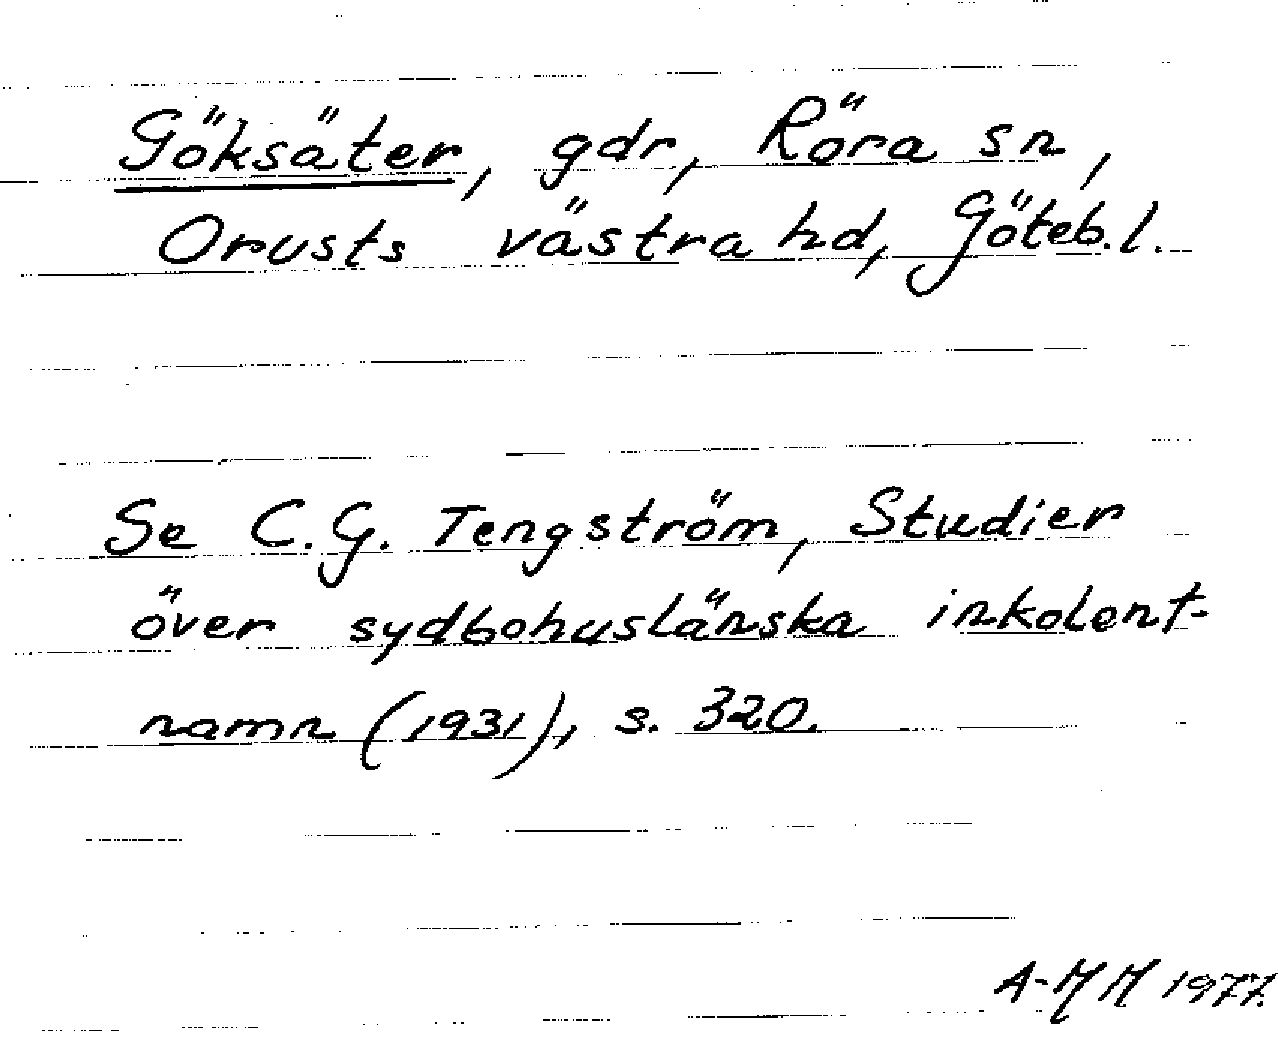 Göksäter, gdr, Röra sn,
Orusts västra hd, Göteb.l.
Se C.G. Tengström, Studier
över sydbohuslänska inkolent-
namn (1931), s. 320.
A-MM 1977.